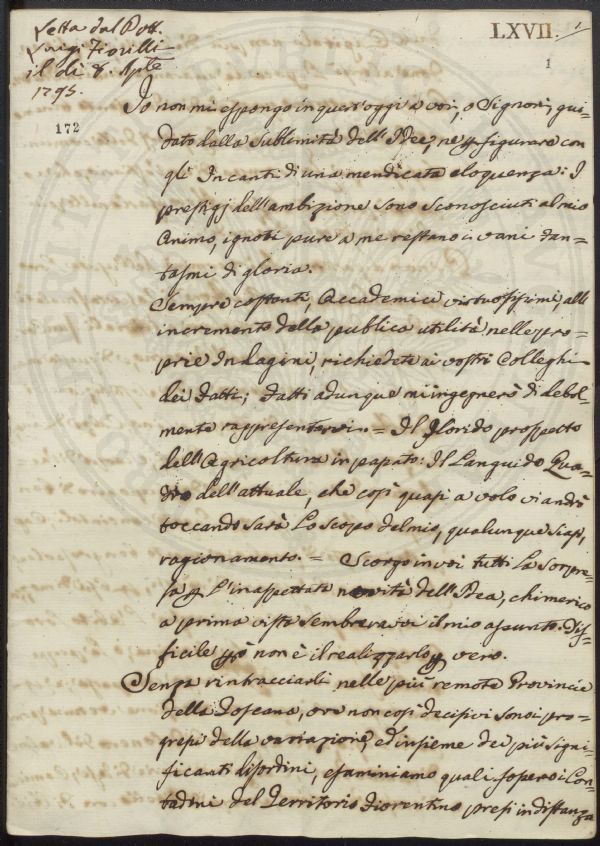 Letta dal Dott.
Luigi Fiorilli
il dì 8. Aple
1795.
LXVII. 1
1
172
Io non mi espongo in quest'oggi a voi, o Signori, gui=
dato dalla Sublimità dell'Idee, nè p figurare con
gli Incanti di una mendicata eloquenza: I
prestigj dell'ambizione sono sconosciuti al mio
Animo, ignoti pure a me restano i vani fan=
tasmi di gloria.
Sempre costanti, Accademici virtuosissimi, all'
incremento della publica utilità nelle pro=
prie Indagini, richiedete ai vostri Colleghi
dei fatti; fatti adunque m'ingegnerò di debol
mente rappresentarvi. = Il florido prospetto
dell'Agricoltura in papato: Il Languido Qua=
dro dell'attuale, che così quasi a volo vi andrò
toccando sarà Lo scopo del mio, qualunque siasi,
ragionamento. = Scorgo in voi tutti La sorpre=
sa p L'inaspettata novità dell'Idea, chimerico
a prima vista sembreravvi il mio assunto. Dif=
ficile pò non è il realizzarlo p vero.
Senza rintracciarli nelle più remote Provincie
della Toscana, ove non così decisivi sono i pro=
gressi della variazione, ed insieme dei più signi=
ficanti disordini, esaminiamo quali fossero i Con=
tadini del Territorio Fiorentino presi in distanza